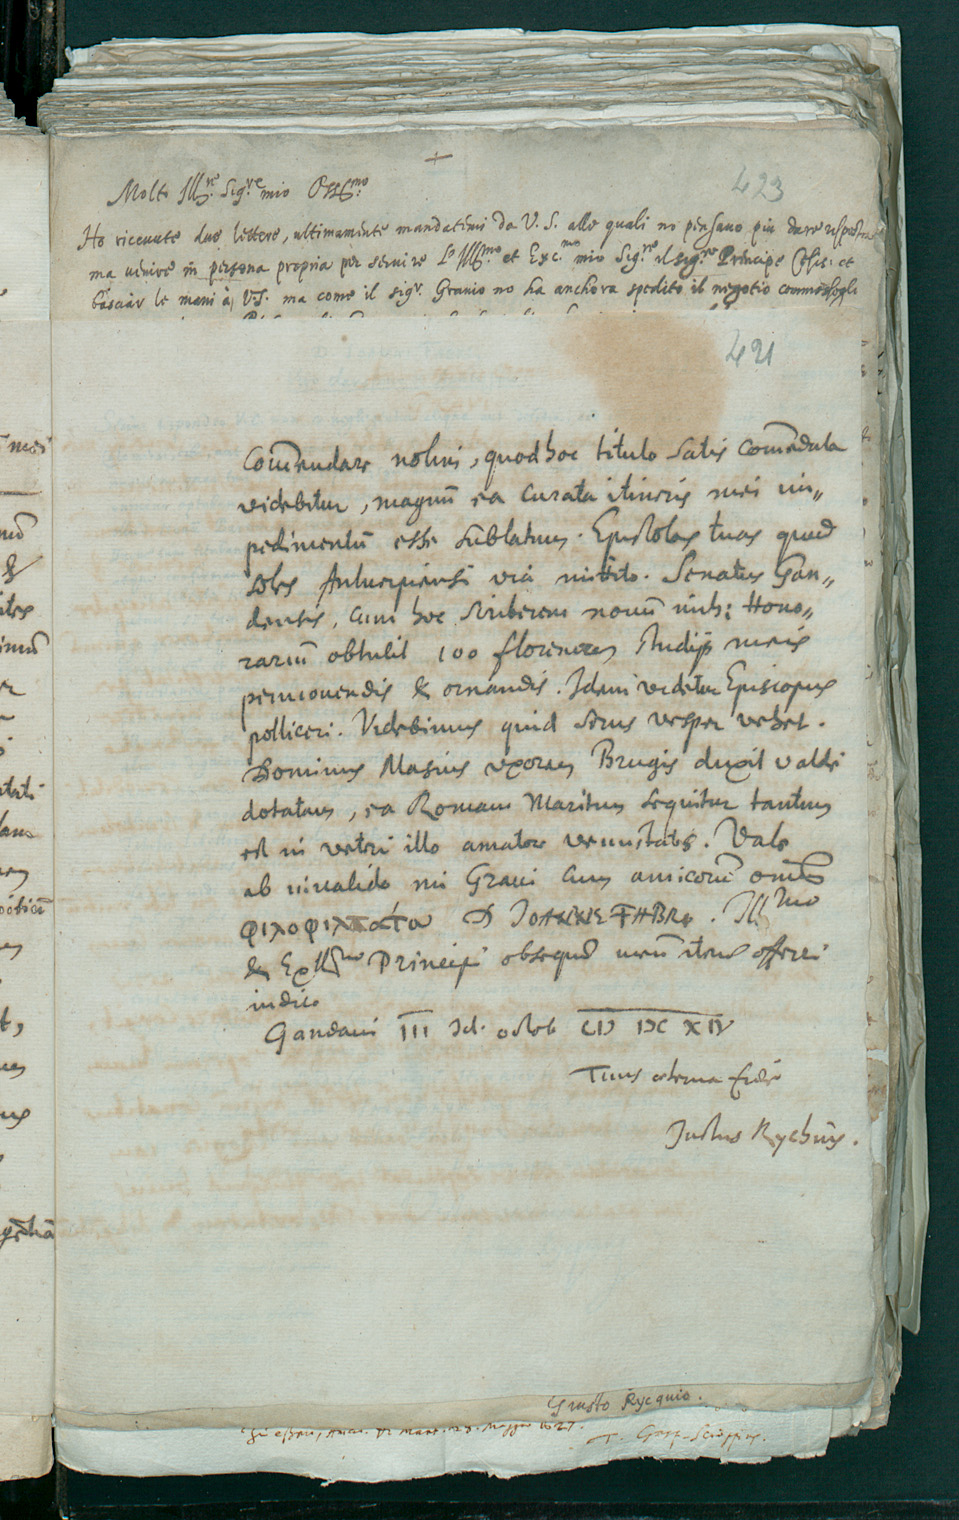 423
Molto Ill.re Sig.re mio Oss.mo
Ho ricevute due lettere, ultimamente mandatemi da V. S. alle quali no pensavo piu dare risposta
ma venire in persona propria per servire L'Ill.mo et Exc.mo mio Sig.re il sig.re Principe Cesis: et
basciar le mani à V.S. ma come il sigr. Gravio no ha anchora spedito il negotio
421
Com̄endare nolui, quod hoc titulo satis com̄endata
videbitur, magnū ea curata itineris mei im„
pedimentū esse sublatum. Epistolas tuas quas
soles Antuerpiensi viâ mittito. Senatus Gan„
densis, cum hoc scriberem novū mihi Hono„
rariū obtulit 100 florenorum studijs meis
promovendis & ornandis. Idem videtur Episcopus
polliceri. Videbimus quid serus vesper vehet.
Dominus Masius uxorem Brugis duxit valde
dotatam, ea Romam Maritum sequitur tantum
est in veteri illo amatore venustatis. Vale
ab invalido mi Gravi cum amicorū omīum
φιλοφιλτάτω D IOANNE FABRO. Ill.mo
& Exll.mo Principi obsequiū meū itens offerri
Gandavi III Id. octob CIƆ IƆC XIV
Tuus æterna fide
Justus Rychius.
Giusto Rycquio.
Gasp. Scioppius.